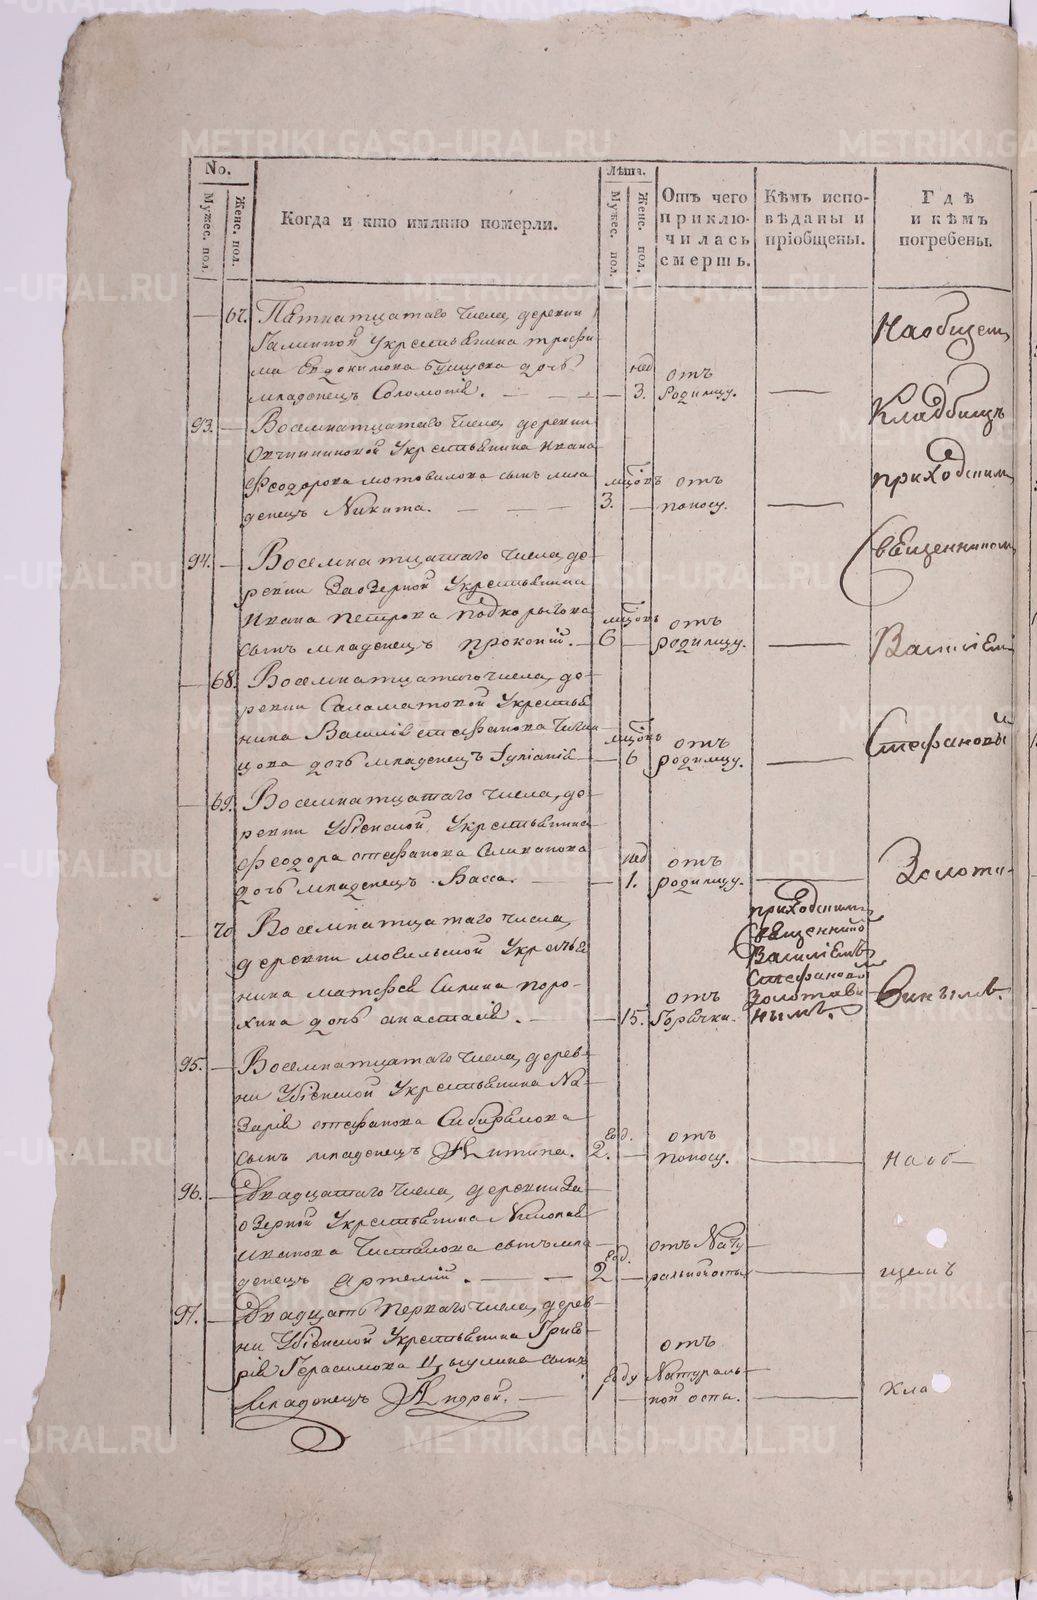 METRIKI.GASO-URAL.RU
No.
Мужес. пол.
Женс. пол.
Когда и кто имянно померли.
Лѣта.
Мужес. пол.
Женс. пол.
Отъ чего приключилась смерть.
Кѣмъ исповѣданы и пріобщены.
Гдѣ и кѣмъ погребены.
67. Пятнатцатаго числа, деревни
Укрестьянина трофи-
ма Евдокимова дочь
младенецъ Соломонія.
нед 3. отъ родимцу.
93. Восемнатцатаго числа, деревни
Овчинниковой Укрестьянина Ивана
Феодорова мотовилова сынъ мла
денецъ Никита.
мцовъ 3. отъ поносу.
94. Восемнатцатаго числа, де-
ревни Заозерной Укрестьянина
Ивана Петрова Подкорытова
сынъ младенецъ прокопій.
мцовъ 6 отъ родимцу.
68. Восемнатцатаго числа, де-
ревни Саламатовой Укрестья
нина Василія стефанова
дочь младенецъ Іуліанія
мцовъ 6 отъ родимцу.
69. Восемнатцатаго числа, де-
ревни Убіенной Укрестьянина
Феодора стефанова Селиванова
дочь младенецъ Васса.
нед 1. отъ родимцу.
70 Восемнатцатаго числа,
деревни Укрестья
нина матфея Силина поро-
хина дочь анастасія.
15. отъ Горячки.
приходскимъ
Священникомъ
Василіемъ
Стефановымъ
Золотави
нымъ.
95. Восемнатцатаго числа, дерев-
ни Убіенной Укрестьянина На-
зарія стефанова Сибирякова
сынъ младенецъ Никита.
год. 2. отъ поносу.
96. Двадцатаго числа, деревни За
озерной Укрестьянина Николая
Иванова Чистякова сынъ мла
денецъ Артемій.
год. 2 отъ Нату
ральной оспы
97. Двадцать перваго числа, дерев-
ни Убіенной Укрестьянина Григо-
рія Герасимова сынъ
младенецъ Андрей.
году 1 отъ
Натураль-
ной оспы.
На общемъ
Кладбищѣ
приходскимъ
Священникомъ
Василіемъ
Стефановымъ
Золота-
винымъ.
На об-
щемъ
кла